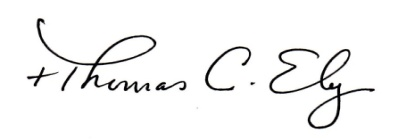 +Thomas C. Ely